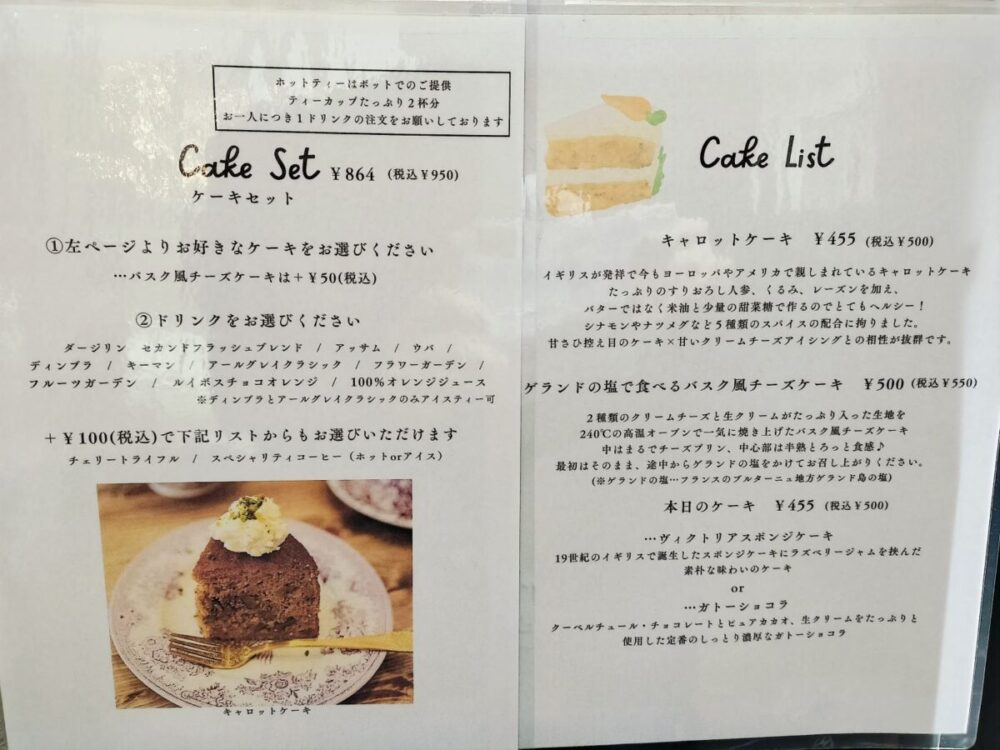 ホットティーはポットでのご提供
ティーカップたっぷり2杯分
お一人につき1ドリンクの注文をお願いしております
Cake Set ¥864 (税込¥950)
ケーキセット
①左ページよりお好きなケーキをお選びください
…バスク風チーズケーキは+¥50(税込)
②ドリンクをお選びください
ダージリン セカンドフラッシュブレンド / アッサム / ウバ /
ディンブラ / キーマン / アールグレイクラシック / フラワーガーデン /
フルーツガーデン / ルイボスチョコオレンジ / 100%オレンジジュース
※ディンブラとアールグレイクラシックのみアイスティー可
+¥100(税込)で下記リストからもお選びいただけます
チェリートライフル / スペシャリティコーヒー(ホットorアイス)
キャロットケーキ
Cake List
キャロットケーキ ¥455 (税込¥500)
イギリスが発祥で今もヨーロッパやアメリカで親しまれているキャロットケーキ
たっぷりのすりおろし人参、くるみ、レーズンを加え、
バターではなく米油と少量の甜菜糖で作るのでとてもヘルシー!
シナモンやナツメグなど5種類のスパイスの配合に拘りました。
甘さひかえ目のケーキ×甘いクリームチーズアイシングとの相性が抜群です。
ゲランドの塩で食べるバスク風チーズケーキ ¥500 (税込¥550)
2種類のクリームチーズと生クリームがたっぷり入った生地を
240℃の高温オーブンで一気に焼き上げたバスク風チーズケーキ
中はまるでチーズプリン、中心部は半熟とろっと食感♪
最初はそのまま、途中からゲランドの塩をかけてお召し上がりください。
(※ゲランドの塩…フランスのブルターニュ地方ゲランド島の塩)
本日のケーキ ¥455 (税込¥500)
…ヴィクトリアスポンジケーキ
19世紀のイギリスで誕生したスポンジケーキにラズベリージャムを挟んだ
素朴な味わいのケーキ
or
…ガトーショコラ
クーベルチュール・チョコレートとピュアカカオ、生クリームをたっぷりと
使用した定番のしっとり濃厚なガトーショコラ